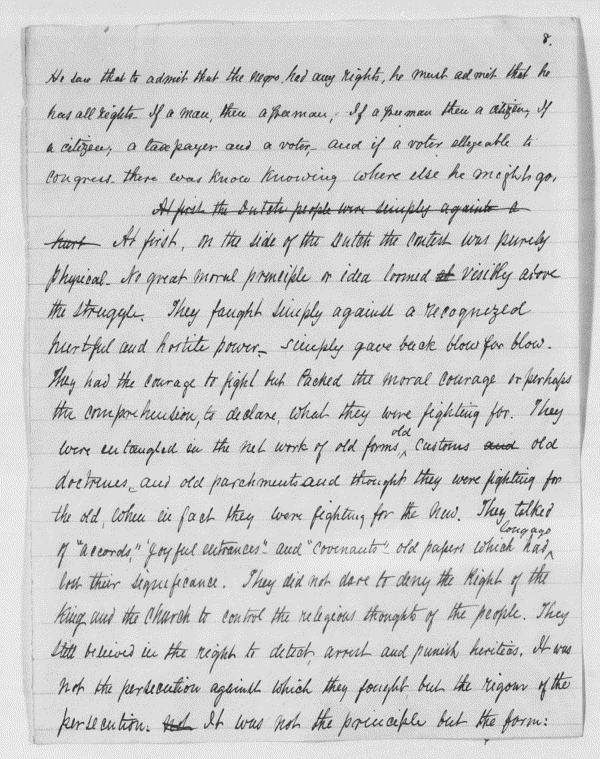 8.
He saw that to admit that the negro, had any rights, he must admit that he
has all rights - If a man, then a freeman, - If a freeman then a citizen, If
a citizen, a tax payer and a voter, - and if a voter ellegeable to
Congress - there was know knowing where else he might go,
At first the Dutch people were simply against a
hurt At first, on the side of the Dutch the contest was purely
physical - No great moral principle or idea loomed visibly above
the struggle. They faught simply against a recognized
hurtful and hostile power - simply gave back blow for blow.
They had the courage to fight but lacked the moral courage or perhaps
the comprehension, to declare, what they were fighting for. They
were entangled in the net work of old forms, old customs and old
doctrines, and old parchments and thought they were fighting for
the old, when in fact they were fighting for the New. They talked
of "accords," "Joyful entrances" and "covenants" old papers which had, long ago
lost their significance. They did not dare to deny the Right of the
King and the Church to control the relegious thoughts of the people. They
still beleived in the right to detect, arrest and punish heritics. It was
not the persecution against which they fought but the rigour of the
persecution. not It was not the principle but the form: